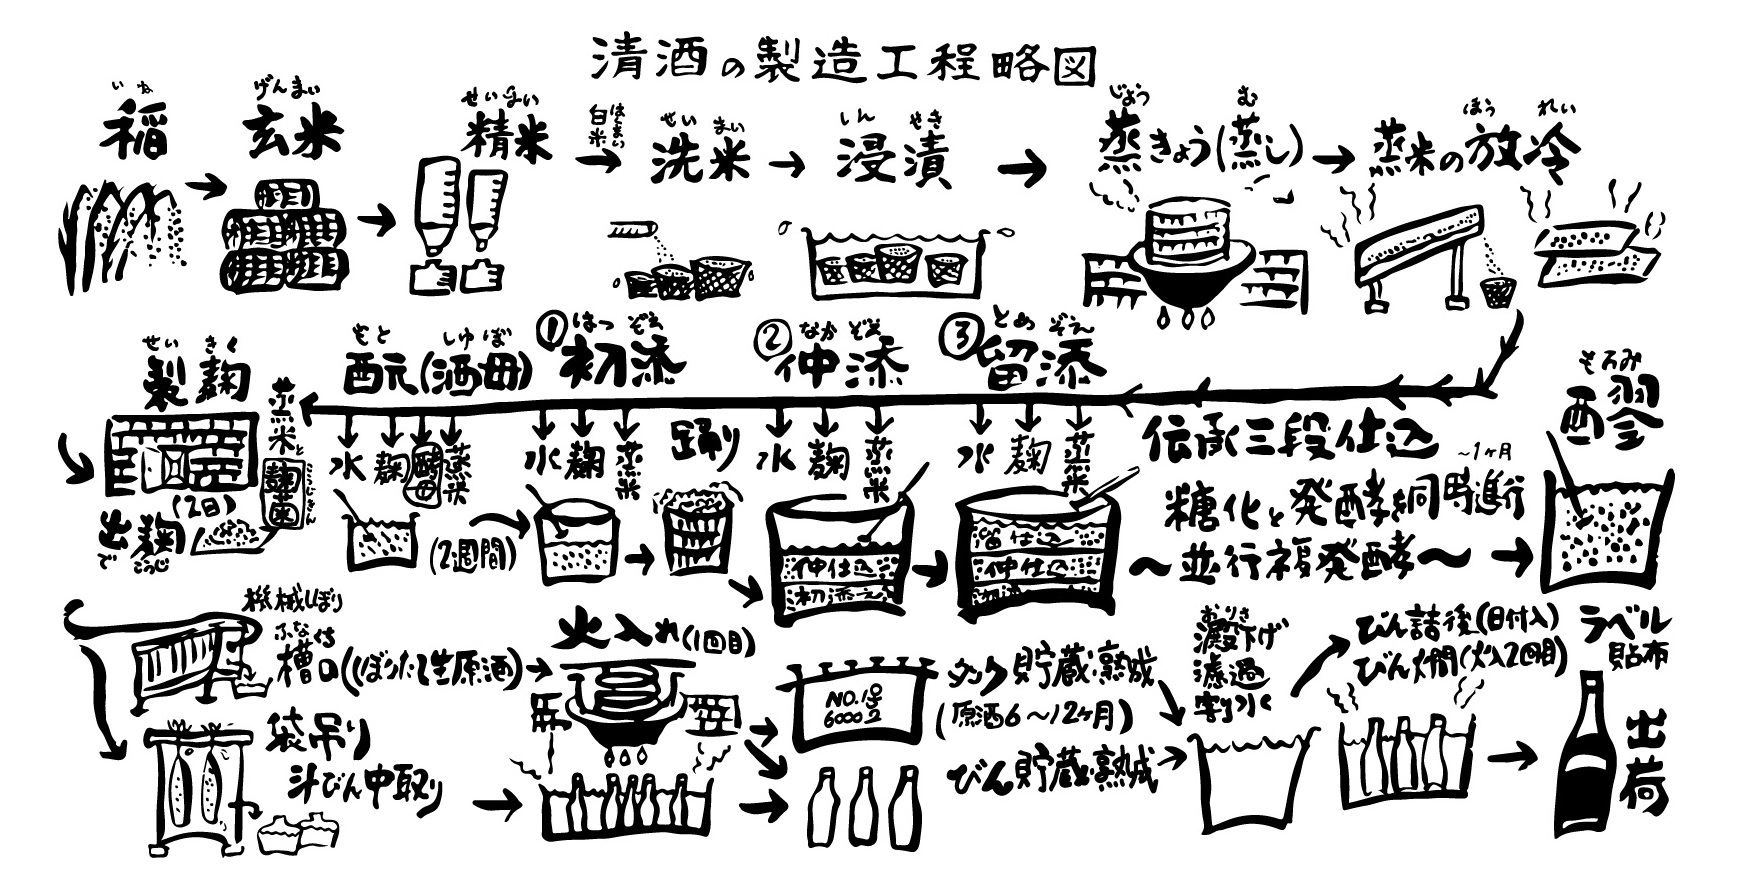 清酒の製造工程略図
いね
稲
げんまい
玄米
せいまい
精米
白米
はくまい
せんまい
洗米
しんせき
浸漬
じょう む
蒸きょう(蒸し)
ほうれい
蒸米の放冷
せいきく
製麹
蒸米と
麹菌
こうじきん
(2日)
出麹
で こうじ
もと しゅぼ
酛(酒母)
水 麹 酵母 蒸米
(2週間)
① はつぞえ
初添
水 麹 蒸米
踊り
② なかぞえ
仲添
水 麹 蒸米
仲仕込
初添え
③ とめぞえ
留添
水 麹 蒸米
留仕込
仲仕込
初添
伝承三段仕込
~1ヶ月
糖化と発酵を同時進行
~並行複発酵~
もろみ
醪
機械しぼり
ふなくち
槽口(しぼりたて生原酒)
袋吊り
斗びん中取り
火入れ(1回目)
NO.1号
6000ℓ
タンク貯蔵・熟成
(原酒6~12ヶ月)
びん貯蔵・熟成
おりさ
澱下げ
濾過
割り水
びん詰後(日付入)
びん燗(火入2回目)
ラベル
貼布
出荷